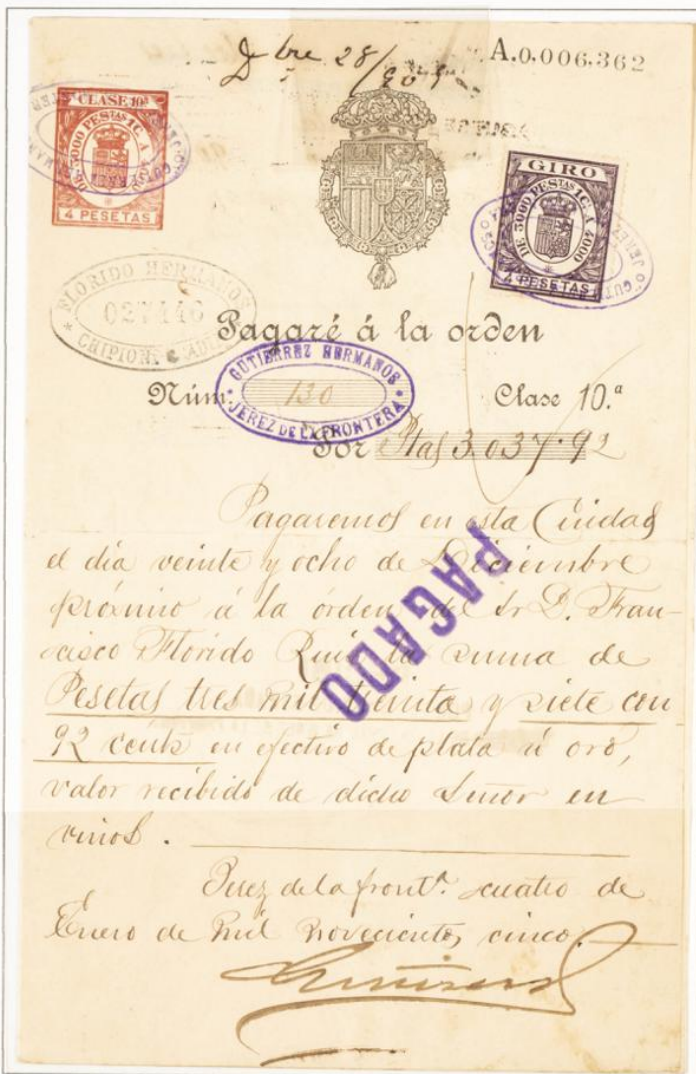 Dbre. 28/905
A.0,006,362
CLASE 10ª
DE 3000 PESTAS 1C. A 4000
4 PESETAS
GIRO
DE 3000 PESTAS 1C. A 4000
4 PESETAS
FLORIDO HERMANOS
027446
CHIPIONA
Pagaré á la orden
GUTIERREZ HERMANOS
Núm. 130 Clase 10.ª
JEREZ DE LA FRONTERA
Por Ptas 3.037.92
Pagaremos en esta Ciudad
el dia veinte y ocho de Diciembre
próximo á la órden del Sr D. Fran-
cisco Florido Ruiz la suma de
Pesetas tres mil treinta y siete con
92 cents en efectivo de plata ú oro,
valor recibido de dicho Señor en
vinos.
PAGADO
Jerez de la frontª. cuatro de
Enero de mil novecientos cinco.